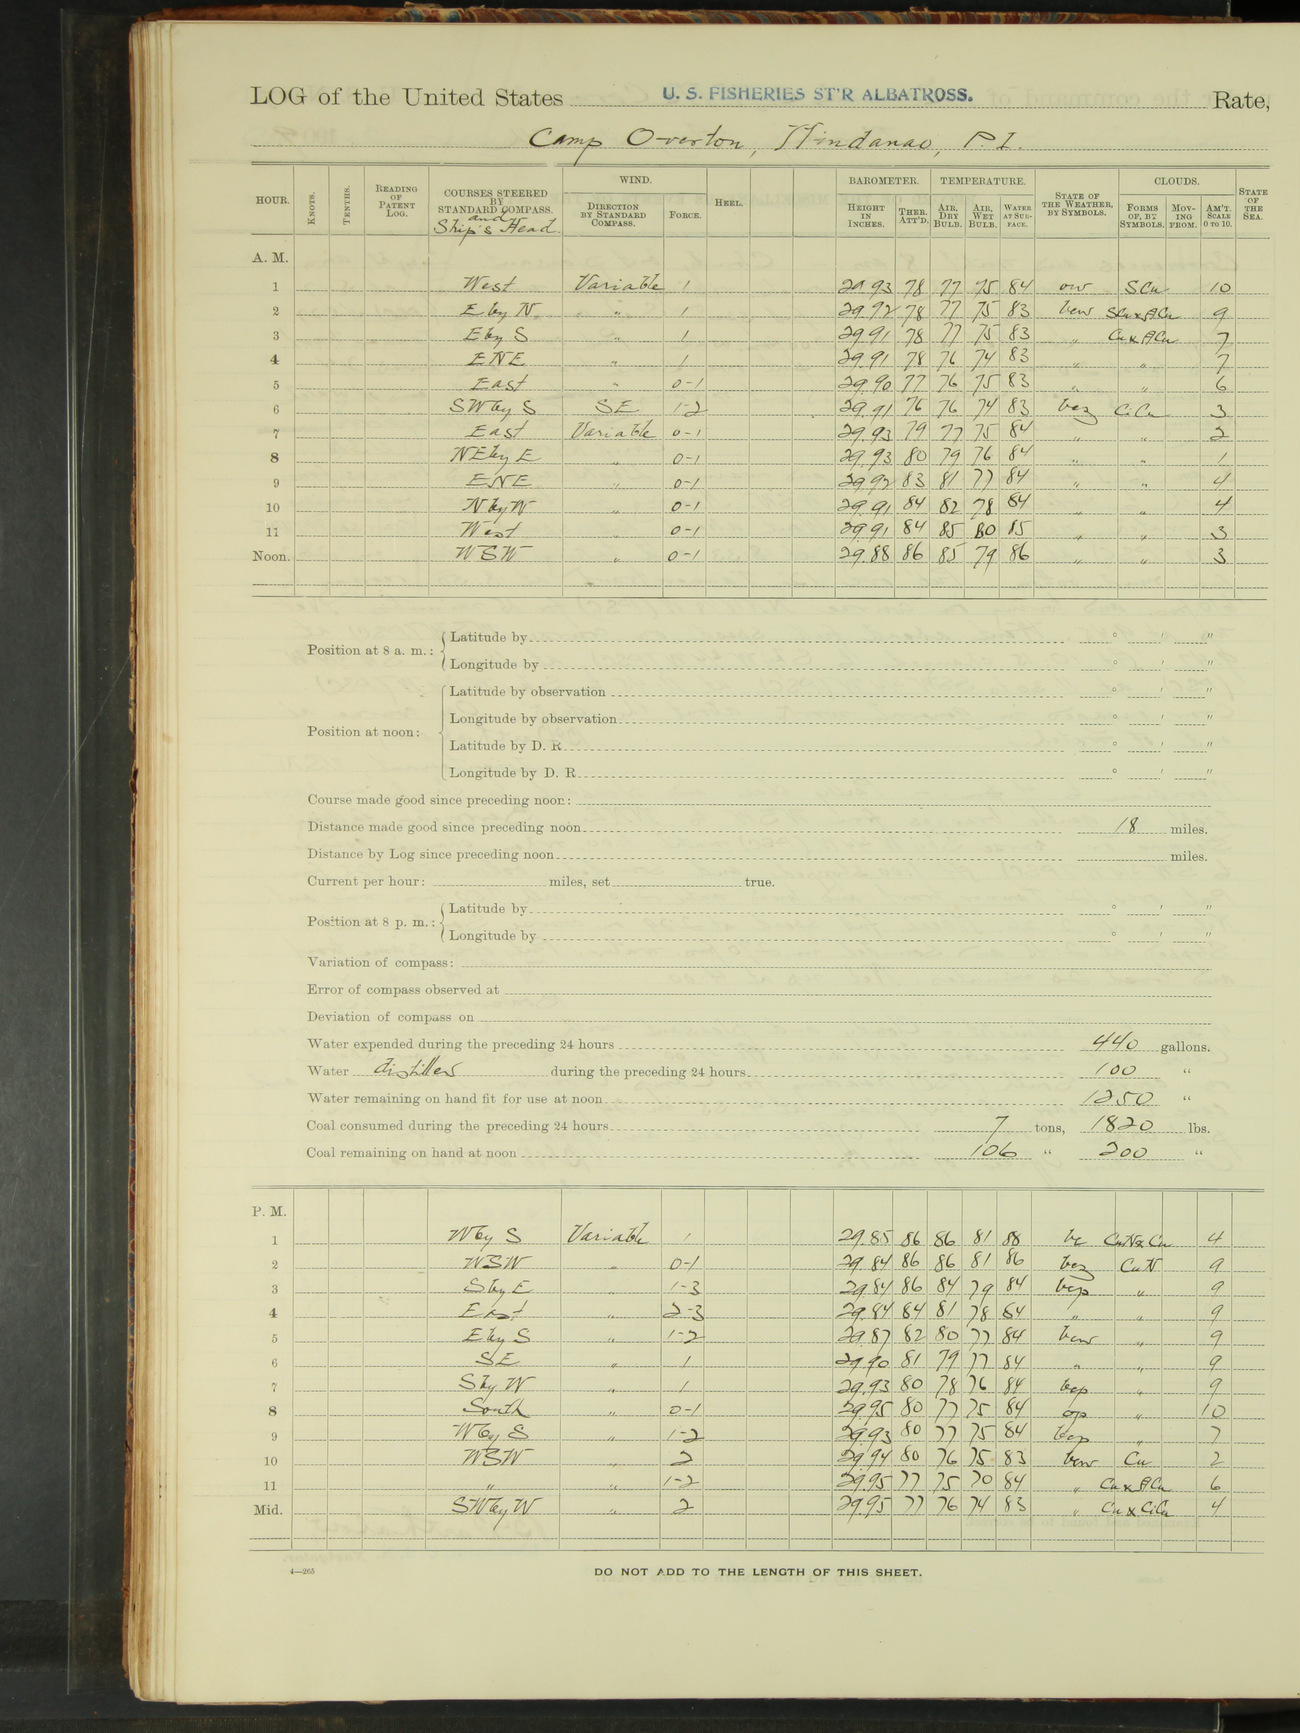 LOG of the United States U. S. FISHERIES ST'R ALBATROSS. Rate,
Camp Overton, Mindanao, P.I.
HOUR. KNOTS. TENTHS. READING OF PATENT LOG. COURSES STEERED BY STANDARD COMPASS. and Ship's Head WIND. DIRECTION BY STANDARD COMPASS. FORCE. HEEL. BAROMETER. HEIGHT IN INCHES. THER. ATT'D. TEMPERATURE. AIR, DRY BULB. AIR, WET BULB. WATER AT SURFACE. STATE OF THE WEATHER, BY SYMBOLS. CLOUDS. FORMS OF, BY SYMBOLS. MOVING FROM. AM'T. SCALE 0 TO 10. STATE OF THE SEA.
A. M.
1 West Variable 1 29.93 78 77 75 84 ow SCu 10
2 E by N. " 1 29.92 78 77 75 83 bcw SCu x ACu 9
3 E by S " 1 29.91 78 77 75 83 " Cu x ACu 7
4 ENE " 1 29.91 78 76 74 83 " " 7
5 East " 0-1 29.90 77 76 75 83 " " 6
6 SW by S SE 1-2 29.91 76 76 74 83 bcz CiCu 3
7 East Variable 0-1 29.93 79 77 75 84 " " 2
8 NE by E " 0-1 29.93 80 79 76 84 " " 1
9 ENE " 0-1 29.92 83 81 77 84 " " 4
10 N by W " 0-1 29.91 84 82 78 84 " " 4
11 West " 0-1 29.91 84 85 80 85 " " 3
Noon. WSW " 0-1 29.88 86 85 79 86 " " 3
Position at 8 a. m.: Latitude by ° ' "
Longitude by ° ' "
Position at noon: Latitude by observation ° ' "
Longitude by observation ° ' "
Latitude by D. R. ° ' "
Longitude by D. R. ° ' "
Course made good since preceding noon:
Distance made good since preceding noon 18 miles.
Distance by Log since preceding noon miles.
Current per hour: miles, set true.
Position at 8 p. m.: Latitude by ° ' "
Longitude by ° ' "
Variation of compass:
Error of compass observed at
Deviation of compass on
Water expended during the preceding 24 hours 440 gallons.
Water distilled during the preceding 24 hours 100 "
Water remaining on hand fit for use at noon 1250 "
Coal consumed during the preceding 24 hours 7 tons, 1820 lbs.
Coal remaining on hand at noon 106 " 200 "
P. M.
1 W by S Variable 1 29.85 86 86 81 88 bc CuN x Cu 4
2 WSW " 0-1 29.84 86 86 81 86 bcz CuN 9
3 S by E " 1-3 29.84 86 84 79 84 bcp " 9
4 East " 2-3 29.84 84 81 78 84 " " 9
5 E by S " 1-2 29.87 82 80 77 84 bcw " 9
6 SE " 1 29.90 81 79 77 84 " " 9
7 S by W " 1 29.93 80 78 76 84 bcp " 9
8 South " 0-1 29.95 80 77 75 84 op " 10
9 W by S " 1-2 29.93 80 77 75 84 bcp " 7
10 WSW " 2 29.94 80 76 75 83 bcw Cu 2
11 " " 1-2 29.95 77 75 70 84 " Cu x ACu 6
Mid. SW by W " 2 29.95 77 76 74 83 " Cu x CiCu 4
4—265
DO NOT ADD TO THE LENGTH OF THIS SHEET.